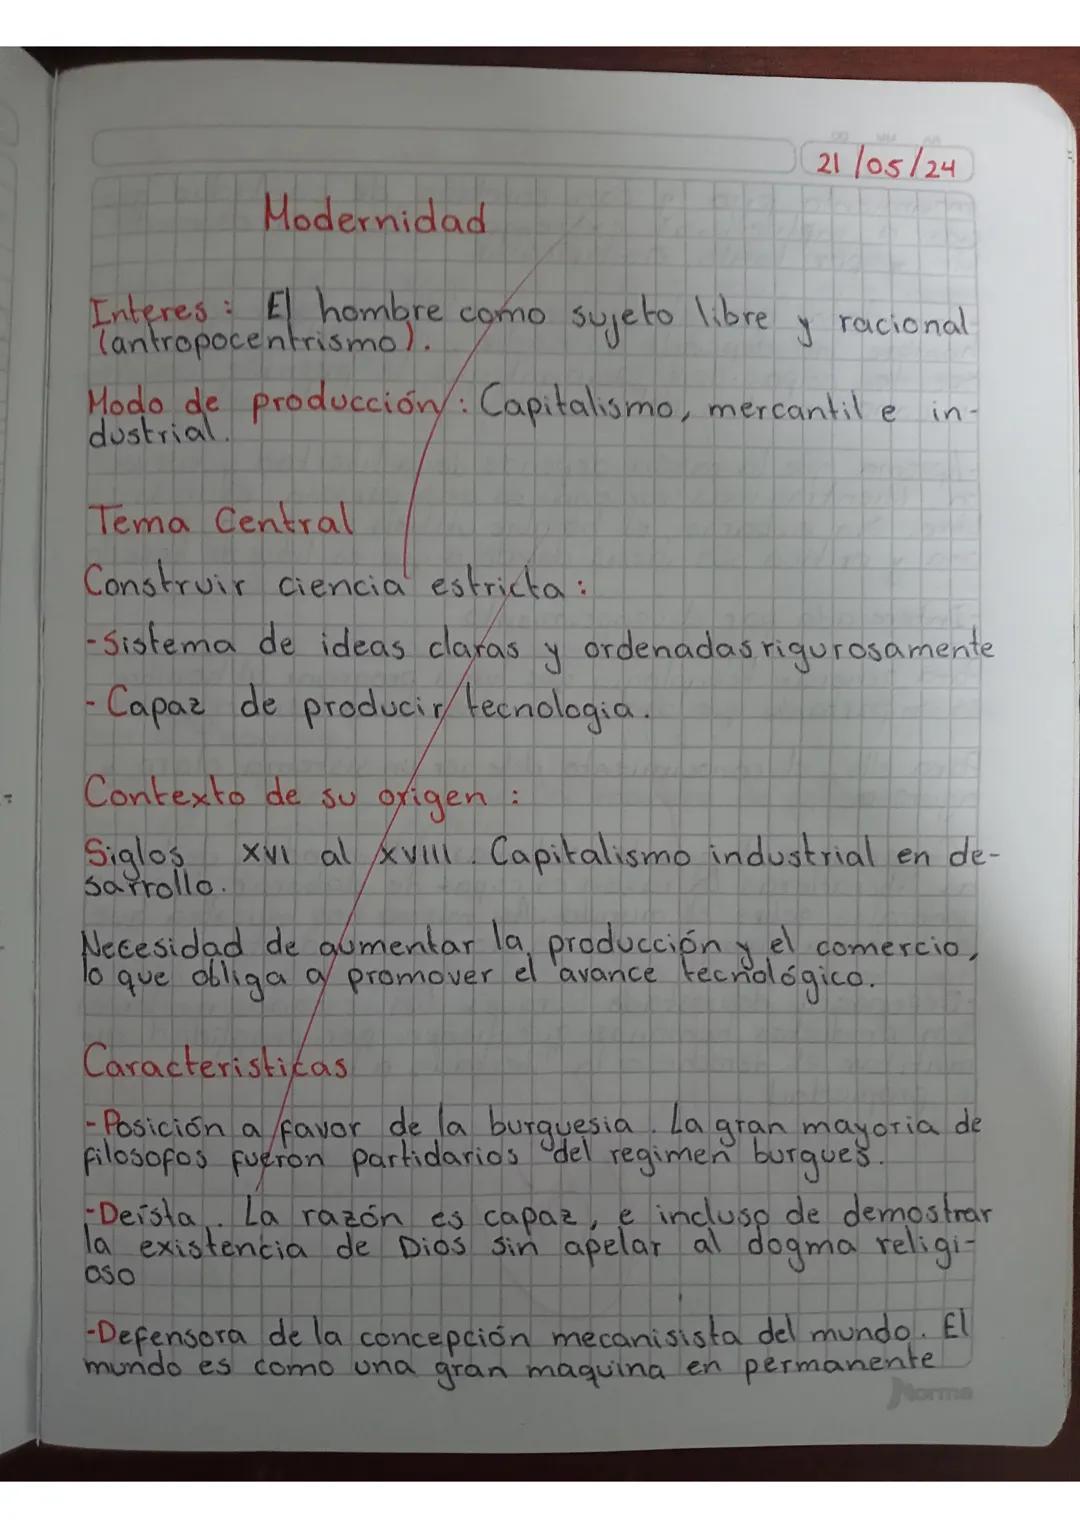 21/05/24
Modernidad
Interes: El hombre como sujeto libre y racional
(antropocentrismo).
Modo de producción: Capitalismo, mercantil e in-
dustrial.
Tema Central
Construir ciencia estricta:
-Sistema de ideas claras y ordenadas rigurosamente
- Capaz de producir tecnologia.
Contexto de su origen:
Siglos XVI al XVIII. Capitalismo industrial en de-
sarrollo.
Necesidad de aumentar la producción y el comercio,
lo que obliga a promover el avance tecnológico.
Caracteristicas
-Posición a favor de la burguesia. La gran mayoria de
filosofos fueron partidarios del regimen burgues.
-Deísta. La razón es capaz, e incluso de demostrar
la existencia de Dios sin apelar al dogma religi-
oso
-Defensora de la concepción mecanisista del mundo. El
mundo es como una gran maquina en permanente
Norma